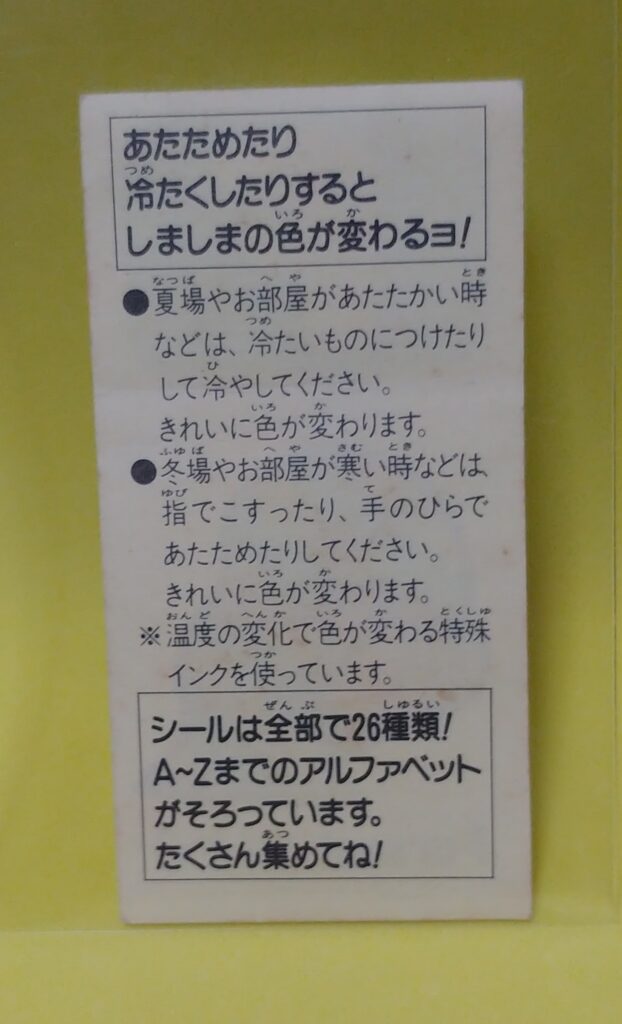 あたためたり
冷たくしたりすると
しましまの色が変わるヨ!
●夏場やお部屋があたたかい時
などは、冷たいものにつけたり
して冷やしてください。
きれいに色が変わります。
●冬場やお部屋が寒い時などは、
指でこすったり、手のひらで
あたためたりしてください。
きれいに色が変わります。
※温度の変化で色が変わる特殊
インクを使っています。
シールは全部で26種類!
A~Zまでのアルファベット
がそろっています。
たくさん集めてね!